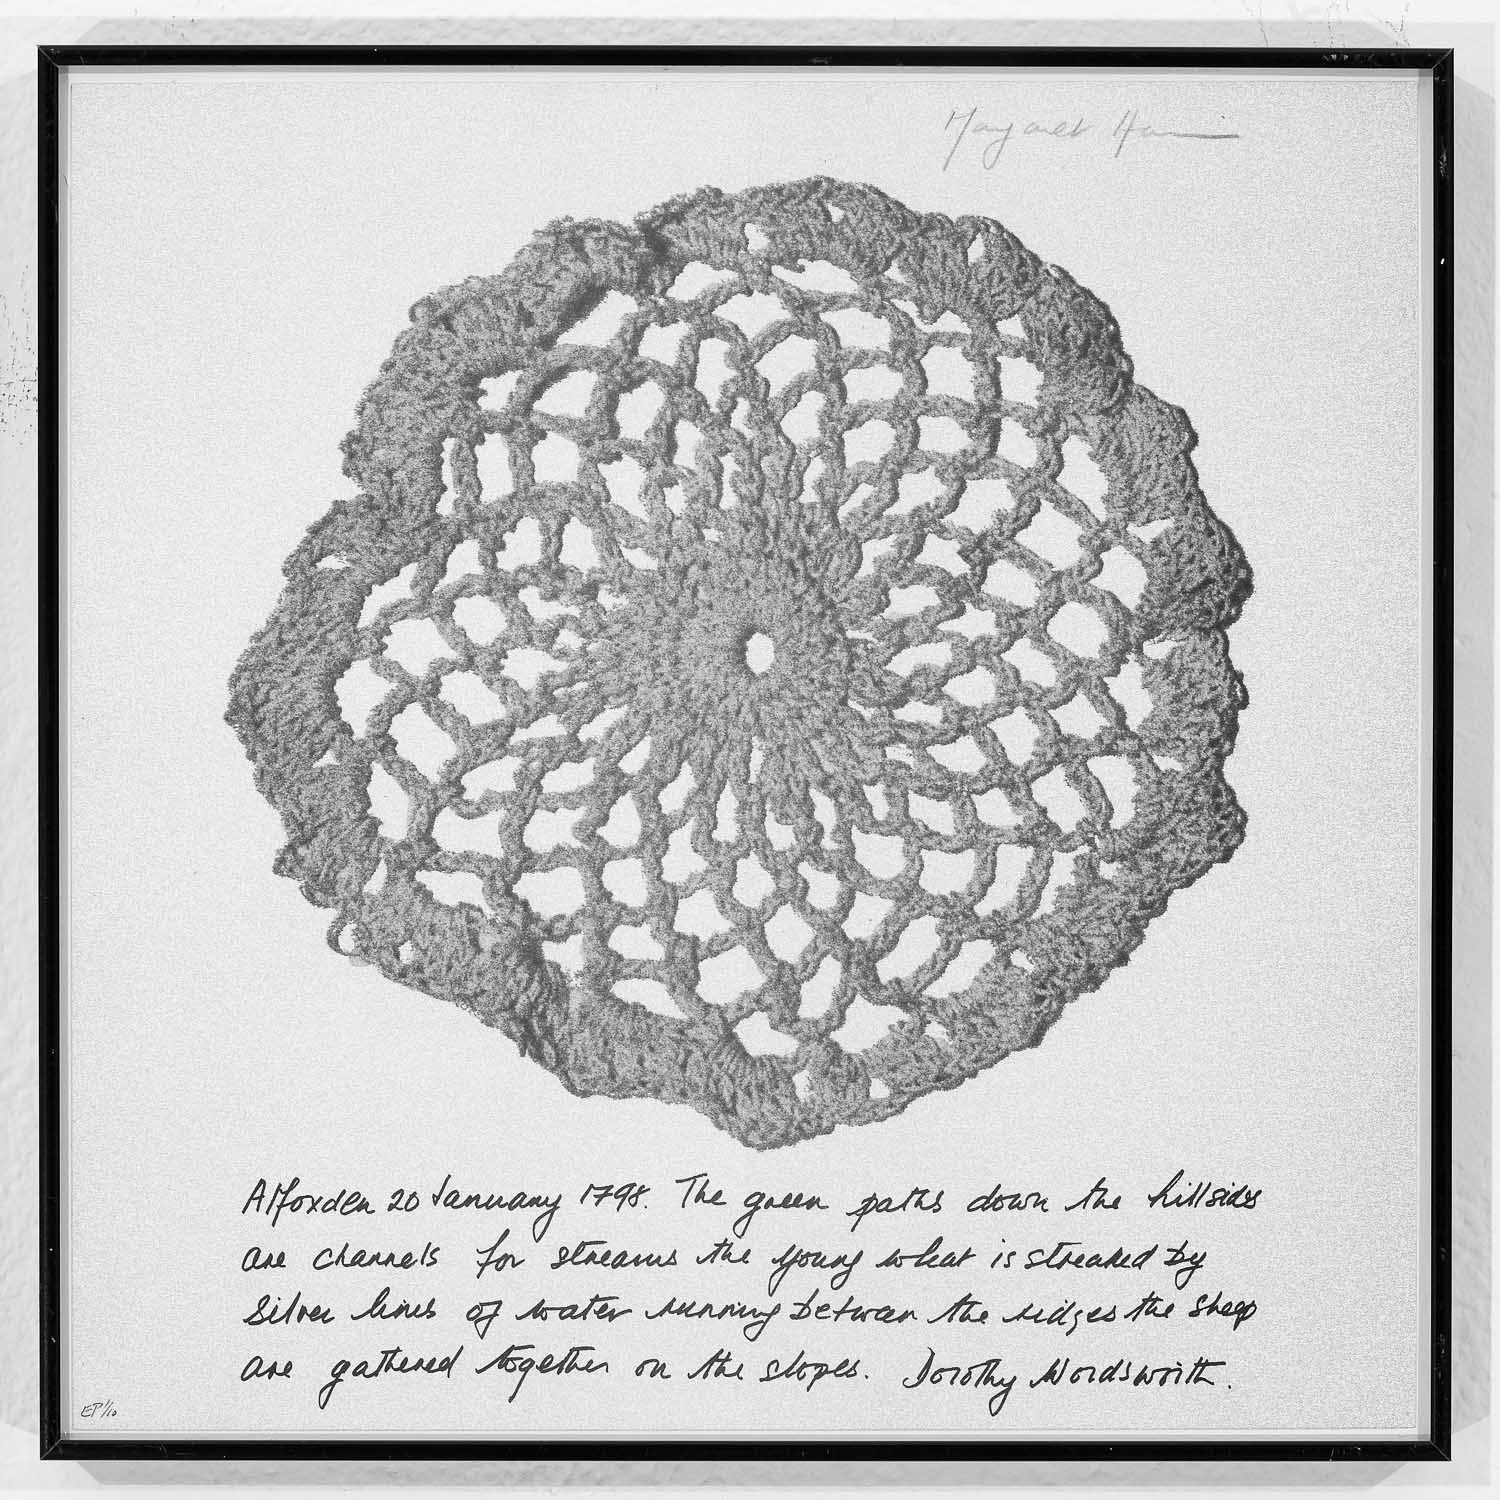 Margaret
Alfoxden 20 January 1798. The green paths down the hillsides
are channels for streams the young wheat is streaked by
silver lines of water running between the ridges the sheep
are gathered together on the slopes. Dorothy Wordsworth.
EP 1/10